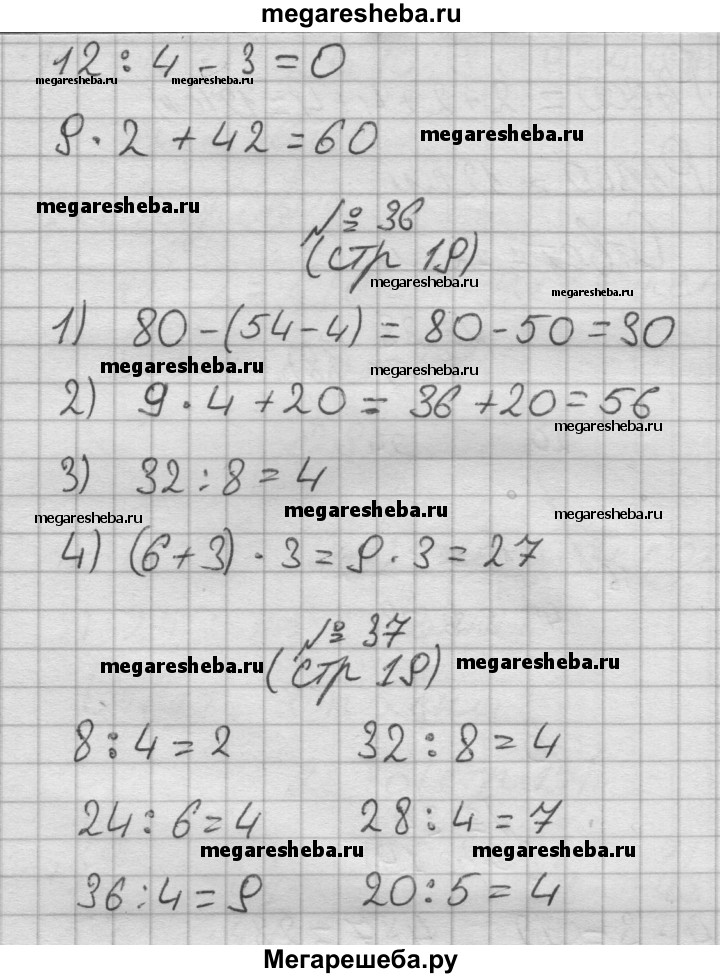 megaresheba.ru
12 : 4 - 3 = 0
megaresheba.ru megaresheba.ru
9 · 2 + 42 = 60 megaresheba.ru
megaresheba.ru
№ 36
(стр 19)
megaresheba.ru
megaresheba.ru
1) 80 - (54 - 4) = 80 - 50 = 30
megaresheba.ru megaresheba.ru
2) 9 · 4 + 20 = 36 + 20 = 56
megaresheba.ru
3) 32 : 8 = 4
megaresheba.ru megaresheba.ru megaresheba.ru
4) (6 + 3) · 3 = 9 · 3 = 27
№ 37
megaresheba.ru (стр 19) megaresheba.ru
8 : 4 = 2 32 : 8 = 4
24 : 6 = 4 28 : 4 = 7
megaresheba.ru megaresheba.ru
36 : 4 = 9 20 : 5 = 4
Мегарешеба.ру